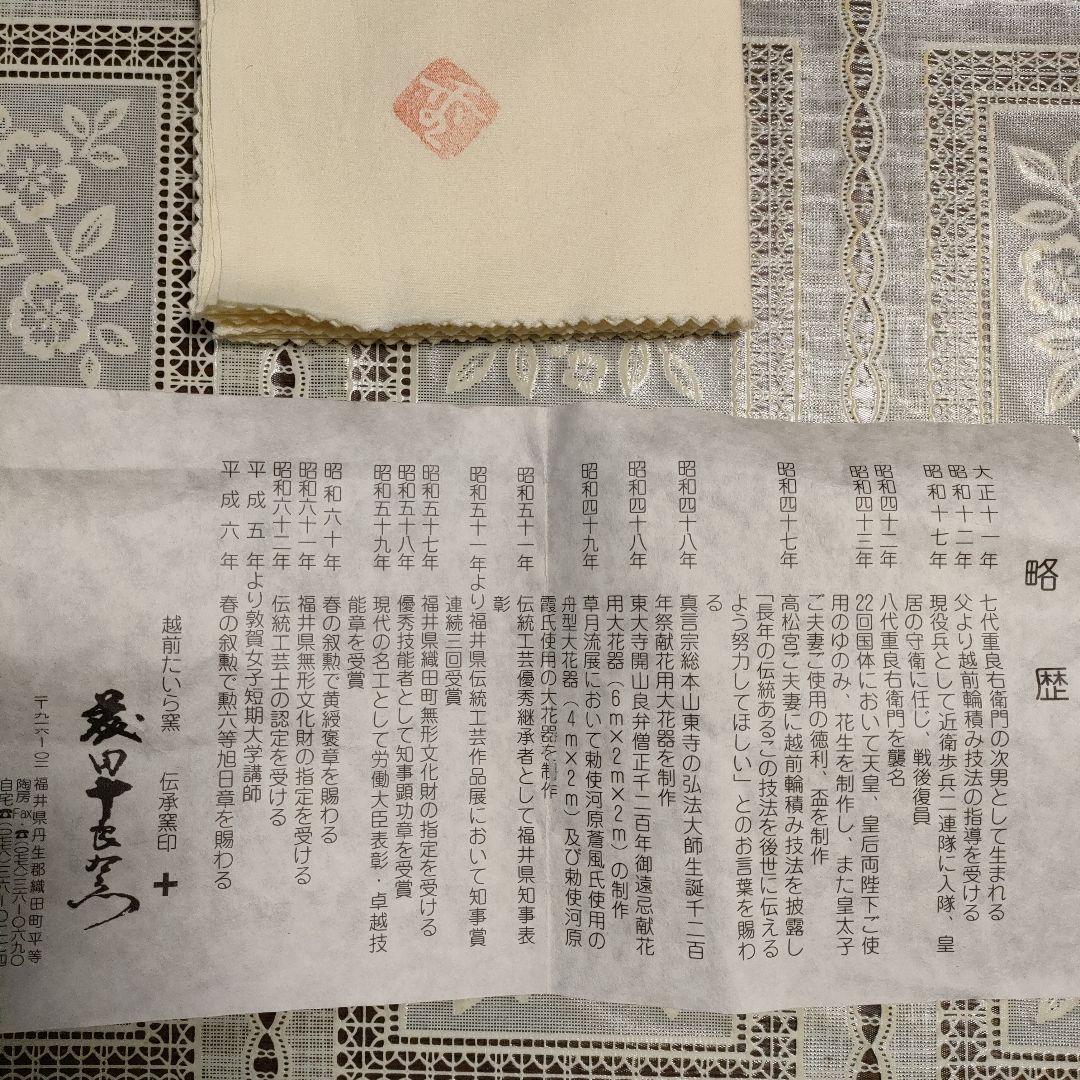 略歴
大正十一年 七代重良右衛門の次男として生まれる
昭和十二年 父より越前輪積み技法の指導を受ける
昭和十七年 現役兵として近衛歩兵二連隊に入隊、皇
居の守衛に任じ、戦後復員
昭和四十二年 八代重良右衛門を襲名
昭和四十三年 22回国体において天皇、皇后両陛下ご使
用のゆのみ、花生を制作し、また皇太子
ご夫妻ご使用の徳利、盃を制作
昭和四十七年 高松宮ご夫妻に越前輪積み技法を披露し
「長年の伝統あるこの技法を後世に伝える
よう努力してほしい」とのお言葉を賜わ
る
昭和四十八年 真言宗総本山東寺の弘法大師生誕千二百
年祭献花用大花器を制作
昭和四十八年 東大寺開山良弁僧正千二百年御遠忌献花
用大花器（6m×2m×2m）の制作
昭和四十九年 草月流展において勅使河原蒼風氏使用の
舟型大花器（4m×2m）及び勅使河原
霞氏使用の大花器を制作
昭和五十一年 伝統工芸優秀継承者として福井県知事表
彰
昭和五十一年より福井県伝統工芸作品展において知事賞
連続三回受賞
昭和五十七年 福井県織田町無形文化財の指定を受ける
昭和五十八年 優秀技能者として知事顕功章を受賞
昭和五十九年 現代の名工として労働大臣表彰・卓越技
能章を受賞
昭和六十年 春の叙勲で黄綬褒章を賜わる
昭和六十一年 福井県無形文化財の指定を受ける
昭和六十二年 伝統工芸士の認定を受ける
平成五年より敦賀女子短期大学講師
平成六年 春の叙勲で勲六等旭日章を賜わる
越前たいら窯 伝承窯印 十
〒九一六-〇二 福井県丹生郡織田町平等